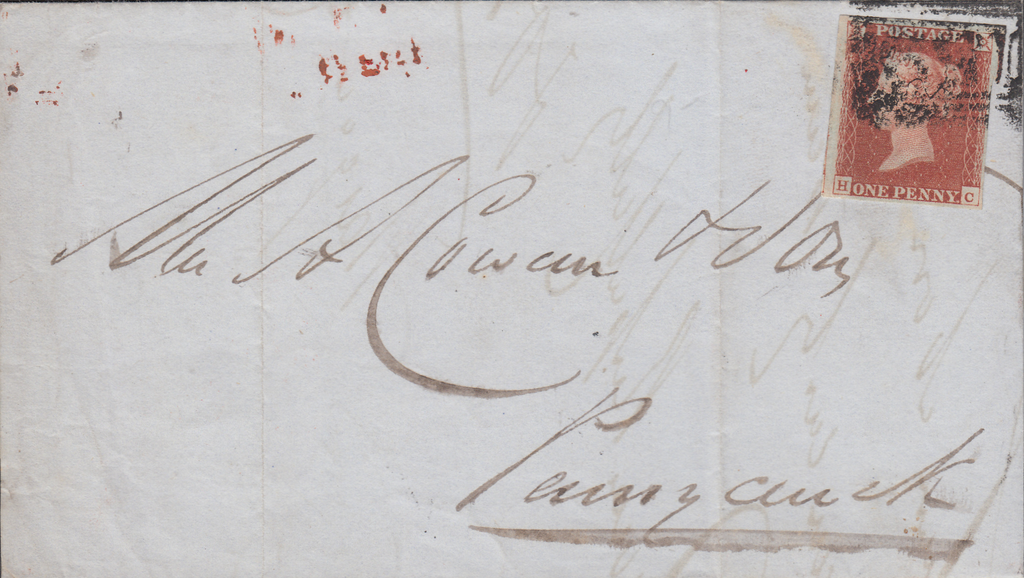 POSTAGE
H ONE PENNY. C
Mr A Cowan & Son
Pennycuick